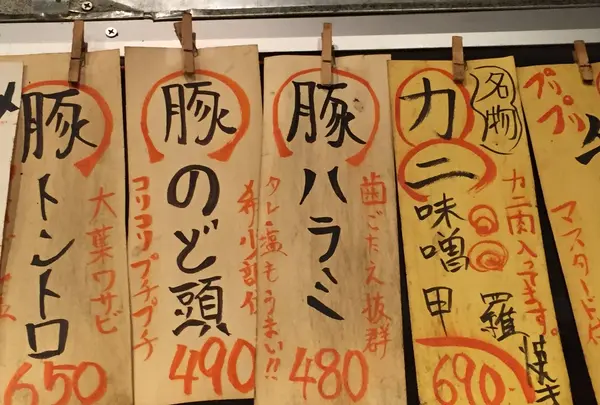 豚トントロ
大葉ワサビ
650
豚のど頭
コリコリプチプチ
希少部位
490
豚ハラミ
歯ごたえ抜群
タレ・塩もうまい!!
480
名物
カニ味噌甲羅焼き
カニ肉入ってます。
690
プリプリ
マスタード